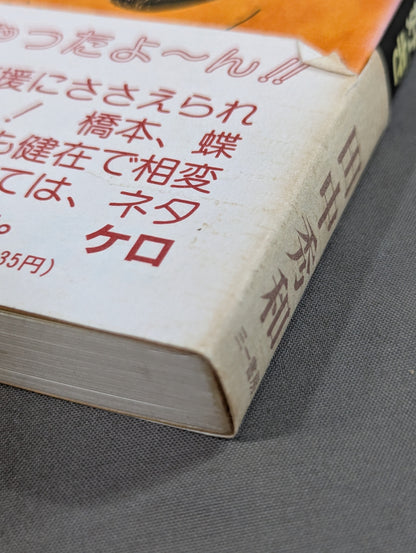 ゃったよ〜ん!!
援にささえられ
! 橋本、蝶
も健在で相変
ては、ネタ
。 ケロ
35円)
田中秀和
三一書房